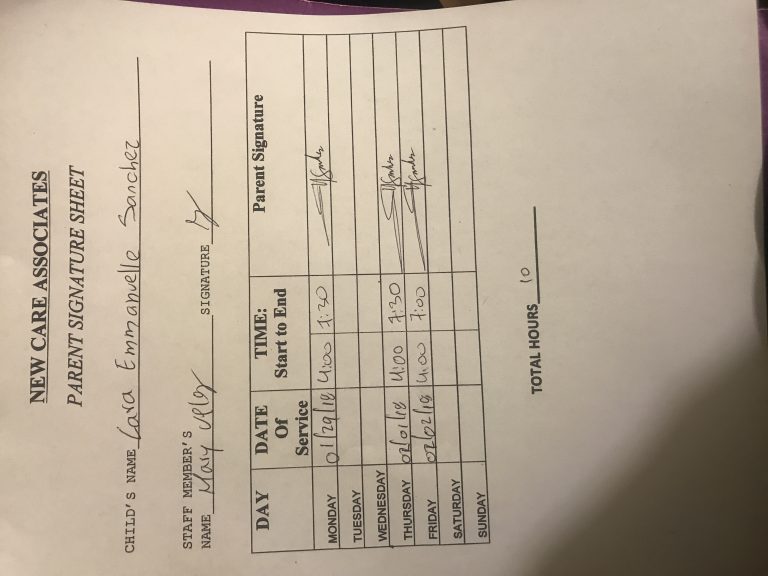 NEW CARE ASSOCIATES
PARENT SIGNATURE SHEET
CHILD'S NAME Cara Emmanuelle Sanchez
STAFF MEMBER'S
NAME Mary Velez SIGNATURE
DAY DATE Of Service TIME: Start to End Parent Signature
MONDAY 01/29/18 4:00 7:30
TUESDAY
WEDNESDAY
THURSDAY 02/01/18 4:00 7:30
FRIDAY 02/02/18 4:00 7:00
SATURDAY
SUNDAY
TOTAL HOURS 10